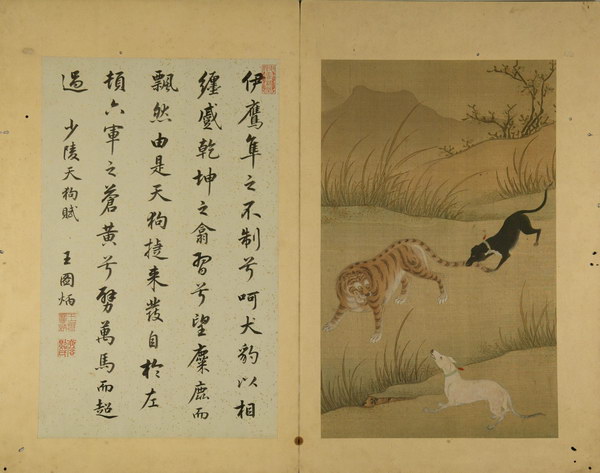 伊鷹隼之不制兮呵犬豹以相
纏蹙乾坤之翕習兮望麋鹿而
飄然由是天狗捷來發自於左
頓六軍之蒼黃兮劈萬馬而超
過
少陵天狗賦 王國炳